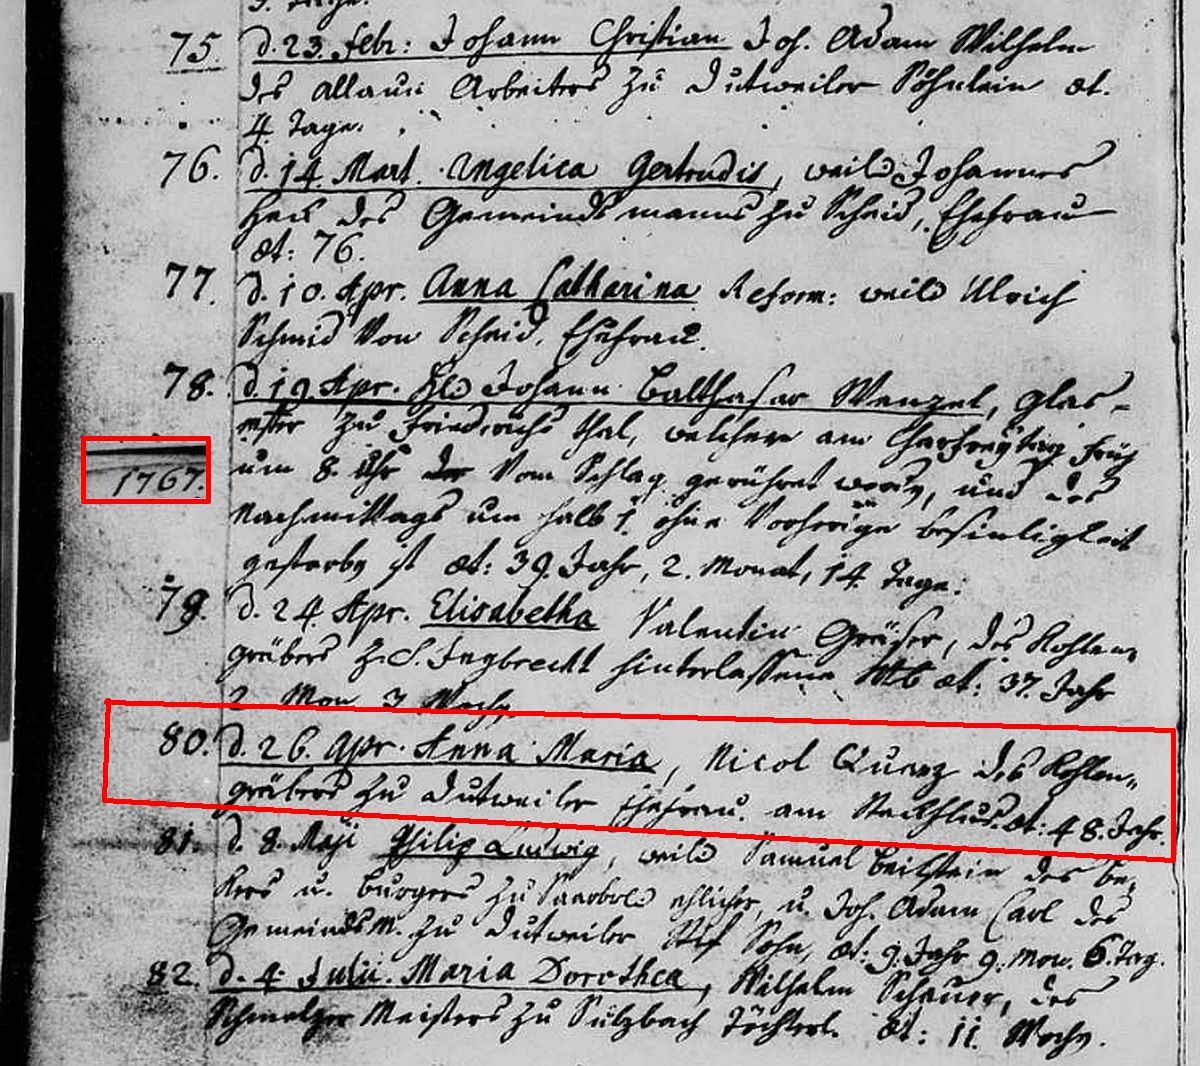 75. d. 23. Febr: Johann Christian Joh. Adam Wilhelm
des allaun Arbeiters zu Dutweiler Söhnlein æt.
4 Tage.
76. d. 14. Mart. Angelica Gertrudis, weild Johannes
des Gemeindsmanns zu Scheid, Ehefrau
æt: 76.
77. d. 10. Apr. Anna Catharina Reform: weild Ulrich
Schmid von Scheid, Ehefrau.
78. d. 19. Apr. Johann Balthasar Wenzel, Glas-
zu Friedrichsthal, welcher am Charfreytag früh
1767.
um 8. Uhr vom Schlag gerühret word, und des
Nachmittags um halb 1. ohne vorherige besinligkeit
gestorbn ist æt: 39. Jahr, 2. Monat, 14 Tage.
79. d. 24 Apr. Elisabetha Valentin Gräser, des Kohlen-
gräbers z. S. Ingbrecht hinterlassene Wtb æt: 37. Jahr
2 Mon 3 Wochn.
80. d. 26. Apr. Anna Maria, Nicol Quarz des Kohlen-
gräbers zu Dutweiler Ehefrau. am æt: 48. Jahr.
81. d. 8. Maji Philip Ludwig, weild Samuel Beilstein des Be-
kers u. Burgers zu ehlicher, u. Joh. Adam Carl des
Gemeindsm. zu Dutweiler Stif Sohn, æt: 9. Jahr 9. Mon. 6. Tag.
82. d. 4. Julii. Maria Dorothea, Wilhelm Scheuer, des
Schmelzer Meisters zu Sulzbach Töchterl. æt: 11. Wochn.